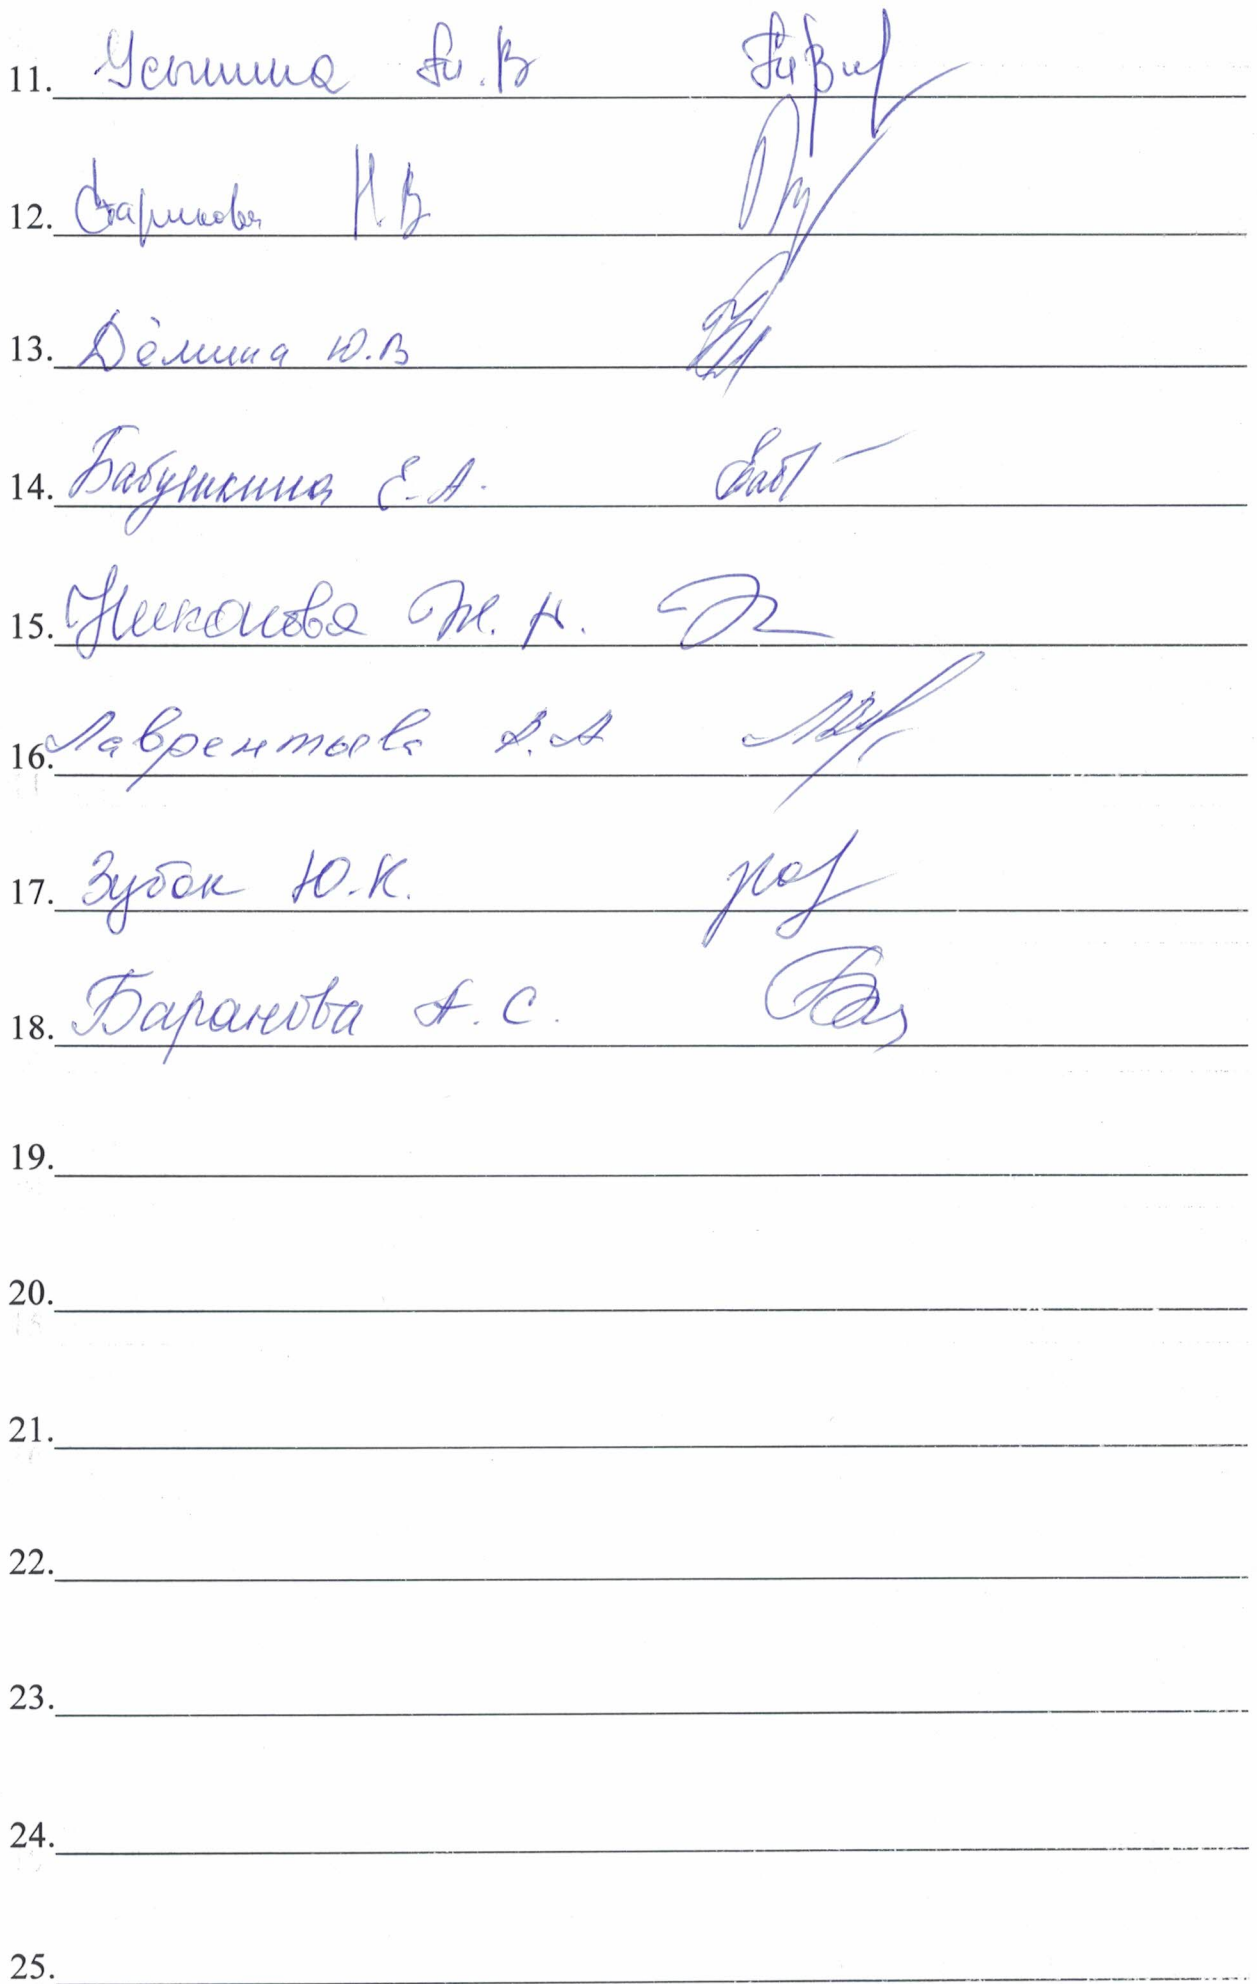 11. Усынина В
12. Старикова Н.В
13. Дёмина Ю.В
14. Бабушкина Е.А.
15. Ж. Н.
16. Лаврентьева А.А
17. Зубок Ю.К.
18. Баранова А.С.
19.
20.
21.
22.
23.
24.
25.